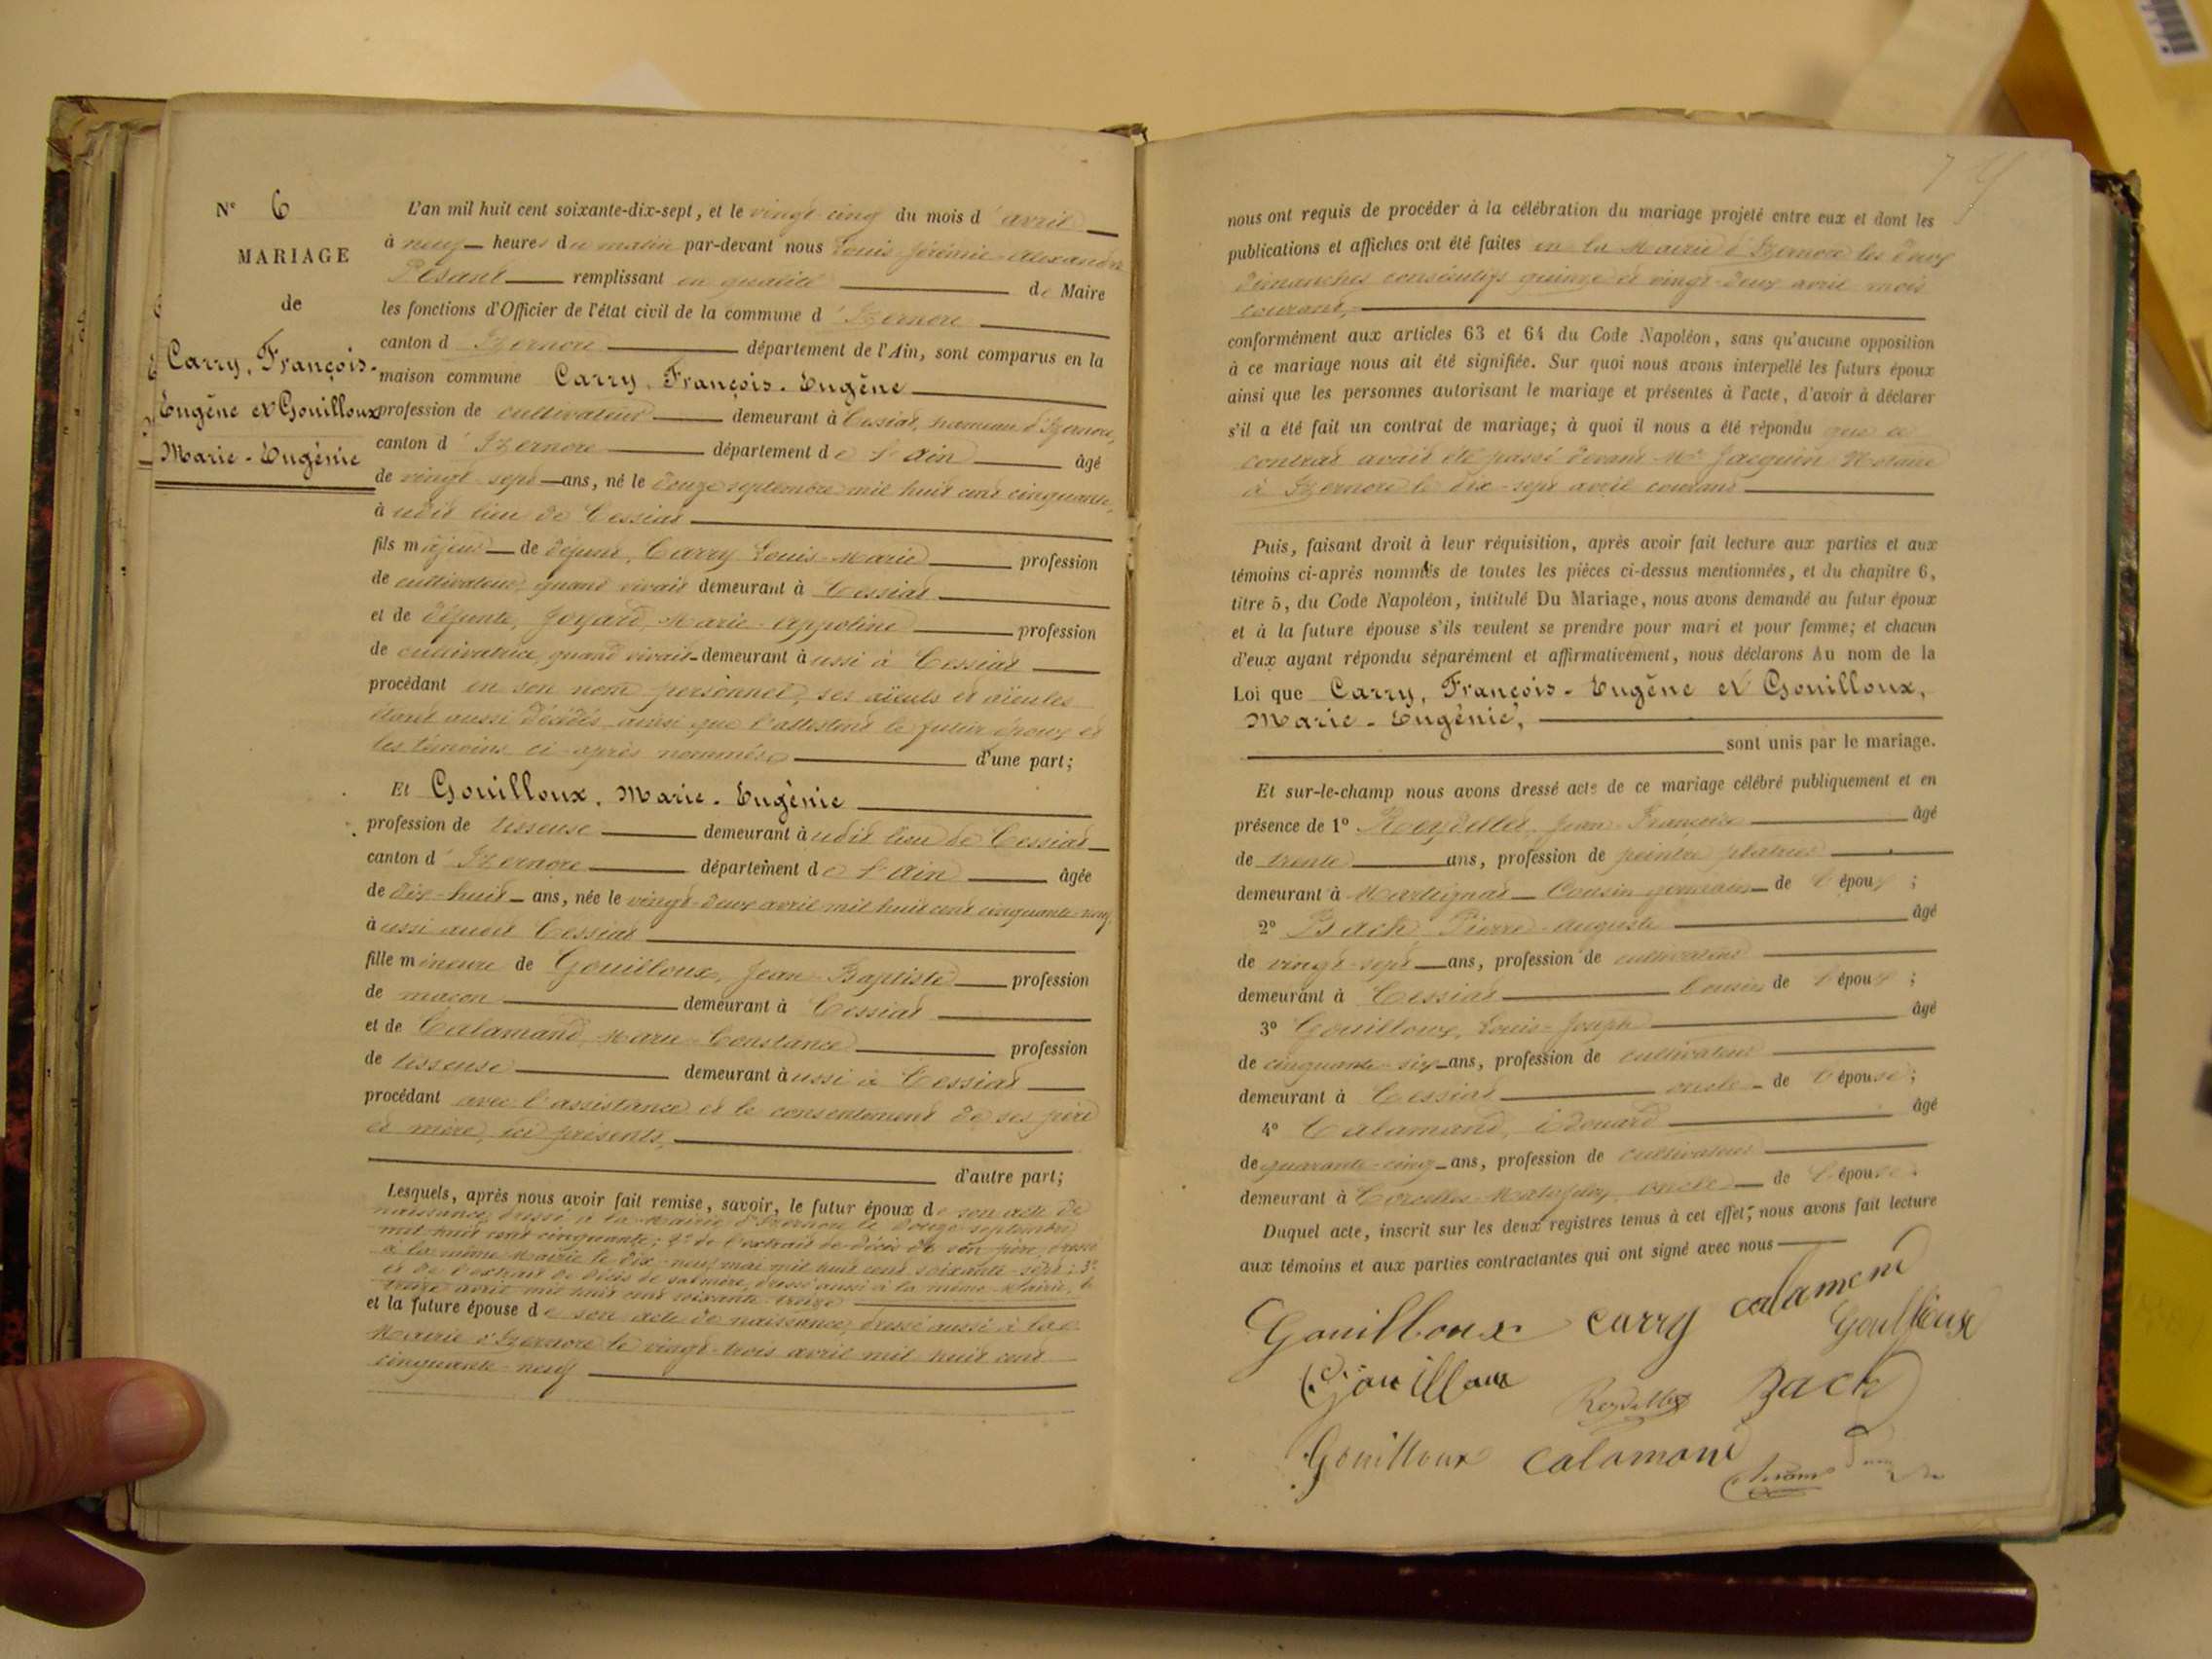 N° 6
MARIAGE
de
Carry, François-
Eugène et Gouilloux
Marie-Eugénie
L'an mil huit cent soixante-dix-sept, et le vingt-cinq du mois d'avril
à neuf heures du matin par-devant nous Louis-Jérémie-Alexandre
Pésant remplissant en qualité de Maire
les fonctions d'Officier de l'état civil de la commune d'Izernore
canton d'Izernore département de l'Ain, sont comparus en la
maison commune Carry, François-Eugène
profession de cultivateur demeurant à Cessiat, hameau d'Izernore,
canton d'Izernore département de l'Ain âgé
de vingt-sept ans, né le douze septembre mil huit cent cinquante,
à udit lieu de Cessiat
fils majeur de défunt, Carry Louis-Marie profession
de cultivateur, quand vivait demeurant à Cessiat
et de défunte, Joyard, Marie-Appoline profession
de cultivatrice, quand vivait demeurant aussi à Cessiat
procédant en son nom personnel, ses aïeuls et aïeules
étant aussi décédés, ainsi que l'attestent le futur époux et
les témoins ci-après nommés d'une part;
Et Gouilloux, Marie-Eugénie
profession de tisseuse demeurant à udit lieu de Cessiat
canton d'Izernore département de l'Ain âgée
de dix-huit ans, née le vingt-deux avril mil huit cent cinquante-neuf
à ussi audit Cessiat
fille mineure de Gouilloux, Jean-Baptiste profession
de maçon demeurant à Cessiat
et de Calamand, Marie-Constance profession
de tisseuse demeurant aussi à Cessiat
procédant avec l'assistance et le consentement de ses père
et mère, ici présents,
d'autre part;
Lesquels, après nous avoir fait remise, savoir, le futur époux de son acte de
naissance, dressé à la Mairie d'Izernore le douze septembre
mil huit cent cinquante; 2° de l'extrait de décès de son père, dressé
à la même Mairie le dix-neuf mai mil huit cent soixante-sept; 3°
et de l'extrait de décès de sa mère, dressé aussi à la même Mairie, le
treize avril mil huit cent soixante-treize
et la future épouse de son acte de naissance, dressé aussi à la
Mairie d'Izernore le vingt-trois avril mil huit cent
cinquante-neuf
nous ont requis de procéder à la célébration du mariage projeté entre eux et dont les
publications et affiches ont été faites en la Mairie d'Izernore les deux
dimanches consécutifs quinze et vingt-deux avril mois
courant,
conformément aux articles 63 et 64 du Code Napoléon, sans qu'aucune opposition
à ce mariage nous ait été signifiée. Sur quoi nous avons interpellé les futurs époux
ainsi que les personnes autorisant le mariage et présentes à l'acte, d'avoir à déclarer
s'il a été fait un contrat de mariage; à quoi il nous a été répondu que ce
contrat avait été passé devant Me Jacquin Notaire
à Izernore le dix-sept avril courant
Puis, faisant droit à leur réquisition, après avoir fait lecture aux parties et aux
témoins ci-après nommés de toutes les pièces ci-dessus mentionnées, et du chapitre 6,
titre 5, du Code Napoléon, intitulé Du Mariage, nous avons demandé au futur époux
et à la future épouse s'ils veulent se prendre pour mari et pour femme; et chacun
d'eux ayant répondu séparément et affirmativement, nous déclarons Au nom de la
Loi que Carry, François-Eugène et Gouilloux,
Marie-Eugénie,
sont unis par le mariage.
Et sur-le-champ nous avons dressé acte de ce mariage célébré publiquement et en
présence de 1° Reydellet, Jean-François âgé
de trente ans, profession de peintre plâtrier
demeurant à Martignat Cousin germain de l'époux;
2° Bach Pierre-Auguste âgé
de vingt-sept ans, profession de cultivateur
demeurant à Cessiat Cousin de l'époux;
3° Gouilloux, Louis-Joseph âgé
de cinquante-six ans, profession de cultivateur
demeurant à Cessiat oncle de l'épouse;
4° Calamand, Edouard âgé
de quarante-cinq ans, profession de cultivateur
demeurant à Corcelles-Matafelon, oncle de l'épouse.
Duquel acte, inscrit sur les deux registres tenus à cet effet, nous avons fait lecture
aux témoins et aux parties contractantes qui ont signé avec nous
Gouilloux Carry calamend
Goulloux
Gouilloux Reydellet Bach
Gouilloux Calamand